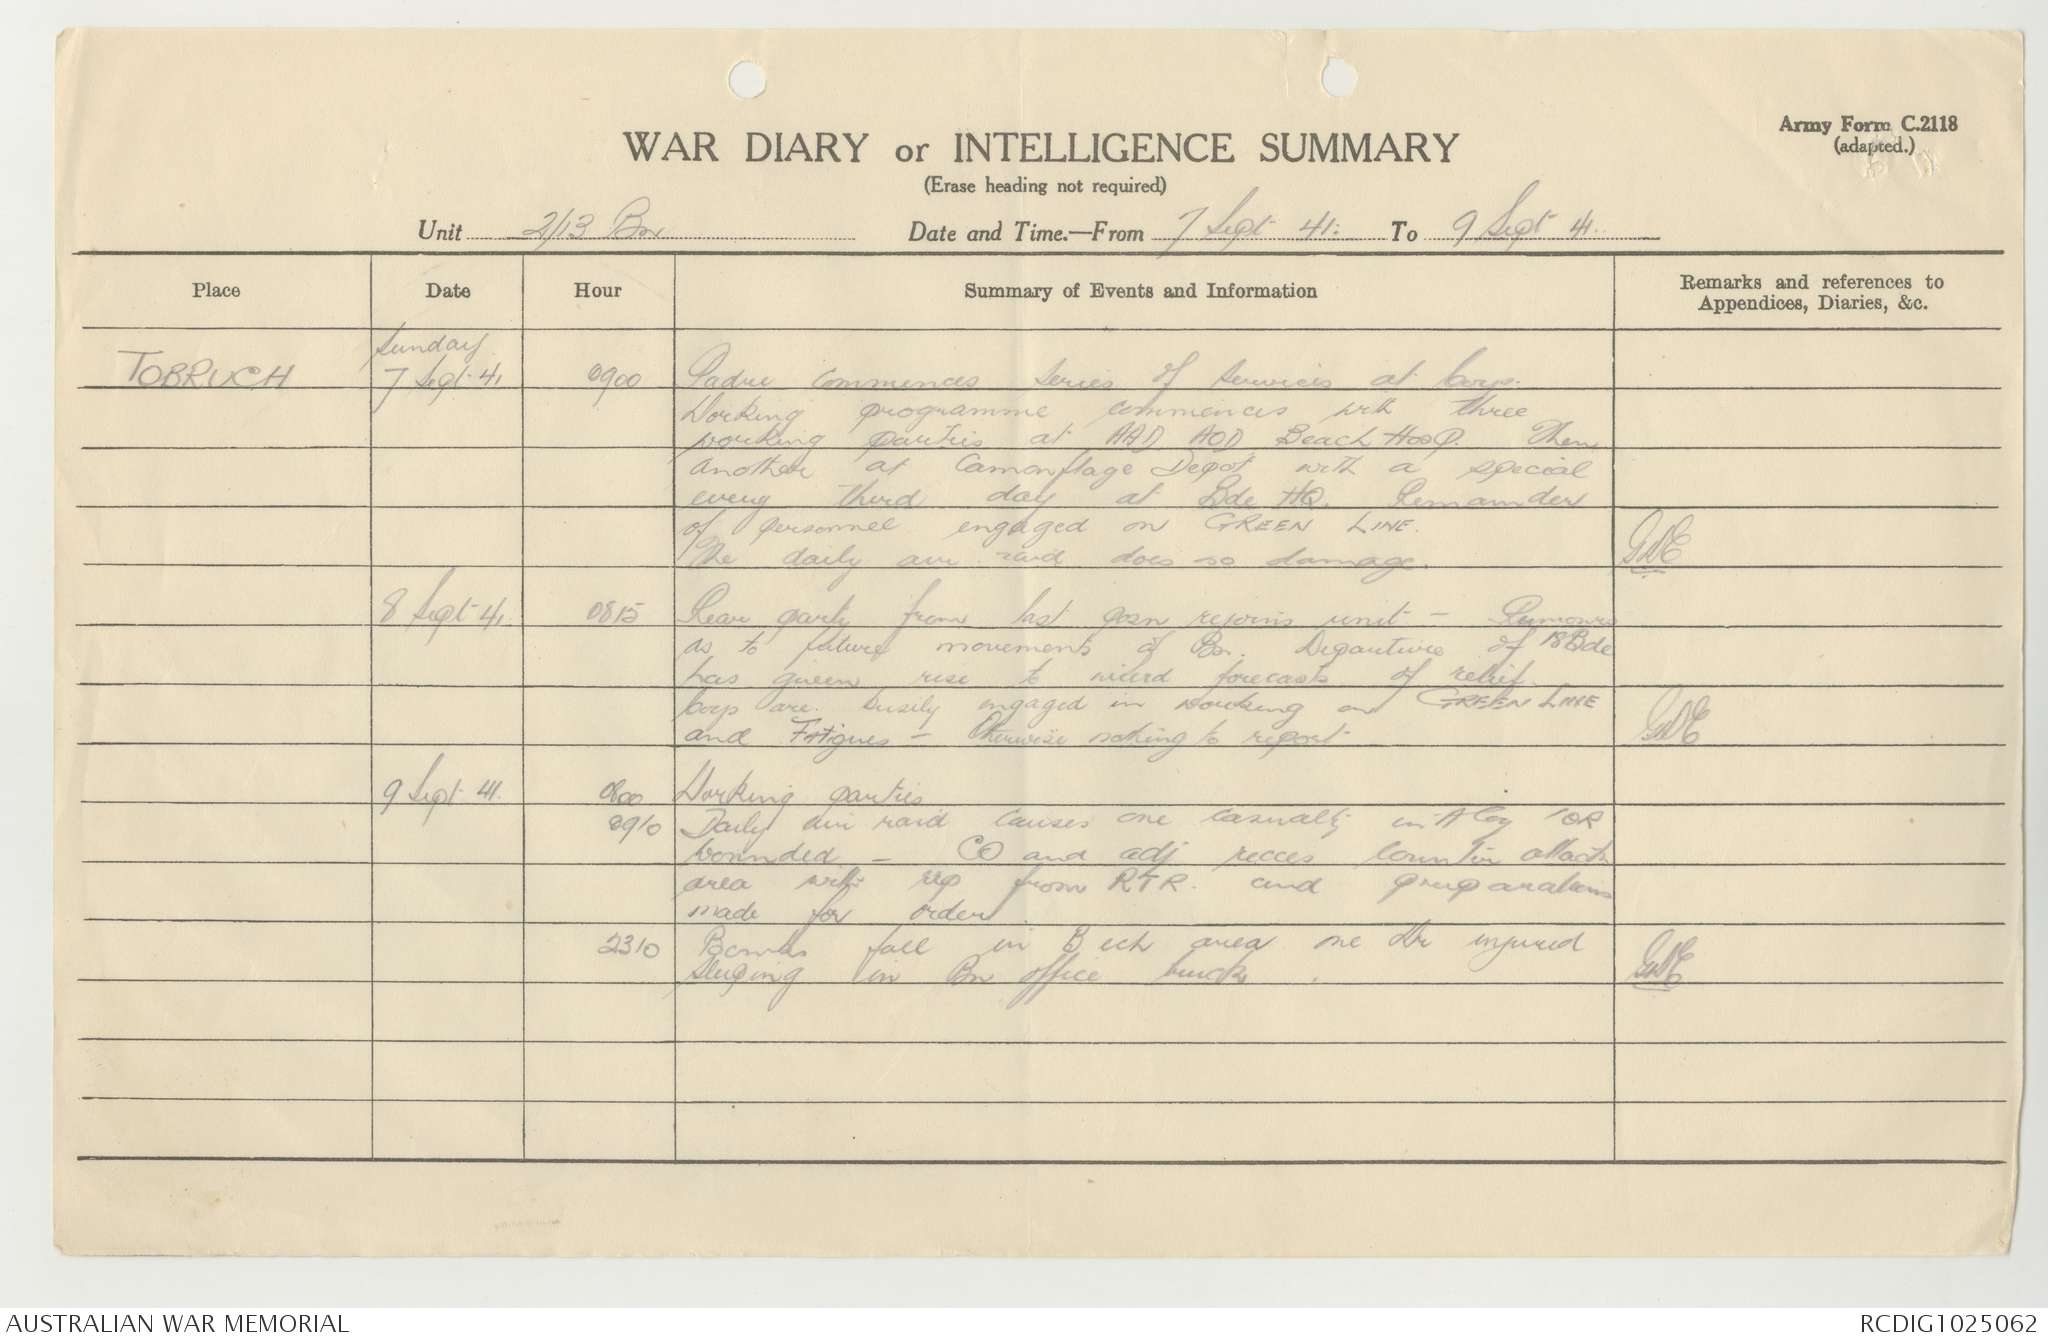 Army Form C.2118
(adapted.)
WAR DIARY or INTELLIGENCE SUMMARY
(Erase heading not required)
Unit 2/13 Bn Date and Time.—From 7 Sept 41. To 9 Sept 41.
Place Date Hour Summary of Events and Information Remarks and references to Appendices, Diaries, &c.
Sunday
TOBRUCH 7 Sept 41 0900 Padre commences series of services at Coys.
Working programme commences with three
working parties at AAD AOD Beach Hosp. Then
another at Camouflage Depot with a special
every third day at Bde HQ. Remainder
of personnel engaged on GREEN LINE.
The daily air raid does no damage. GDE
8 Sept 41. 0815 Rear party from last posn rejoins unit – Rumours
as to future movements of Bn. Departure of 18 Bde
has given rise to wierd forecasts of relief.
Coys are busily engaged in working on GREEN LINE
and Fatigues – Otherwise nothing to report GDE
9 Sept 41. 0800 Working parties
0910 Daily air raid causes one casualty in A Coy 1 OR
wounded – CO and adj recces counter attack
area with rep from RTR. and preparations
made for order.
2310 Bombs fall in B ech area one Dr injured
sleeping in Bn office truck. GDE
AUSTRALIAN WAR MEMORIAL RCDIG1025062